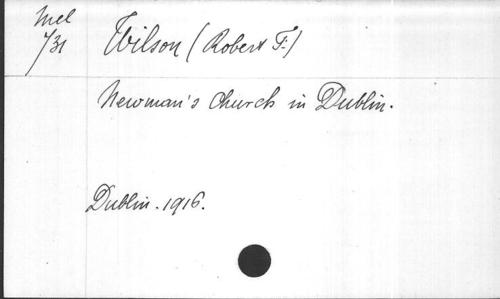 Mel
/31
Wilson (Robert F.)
Newman's Church in Dublin.
Dublin. 1916.